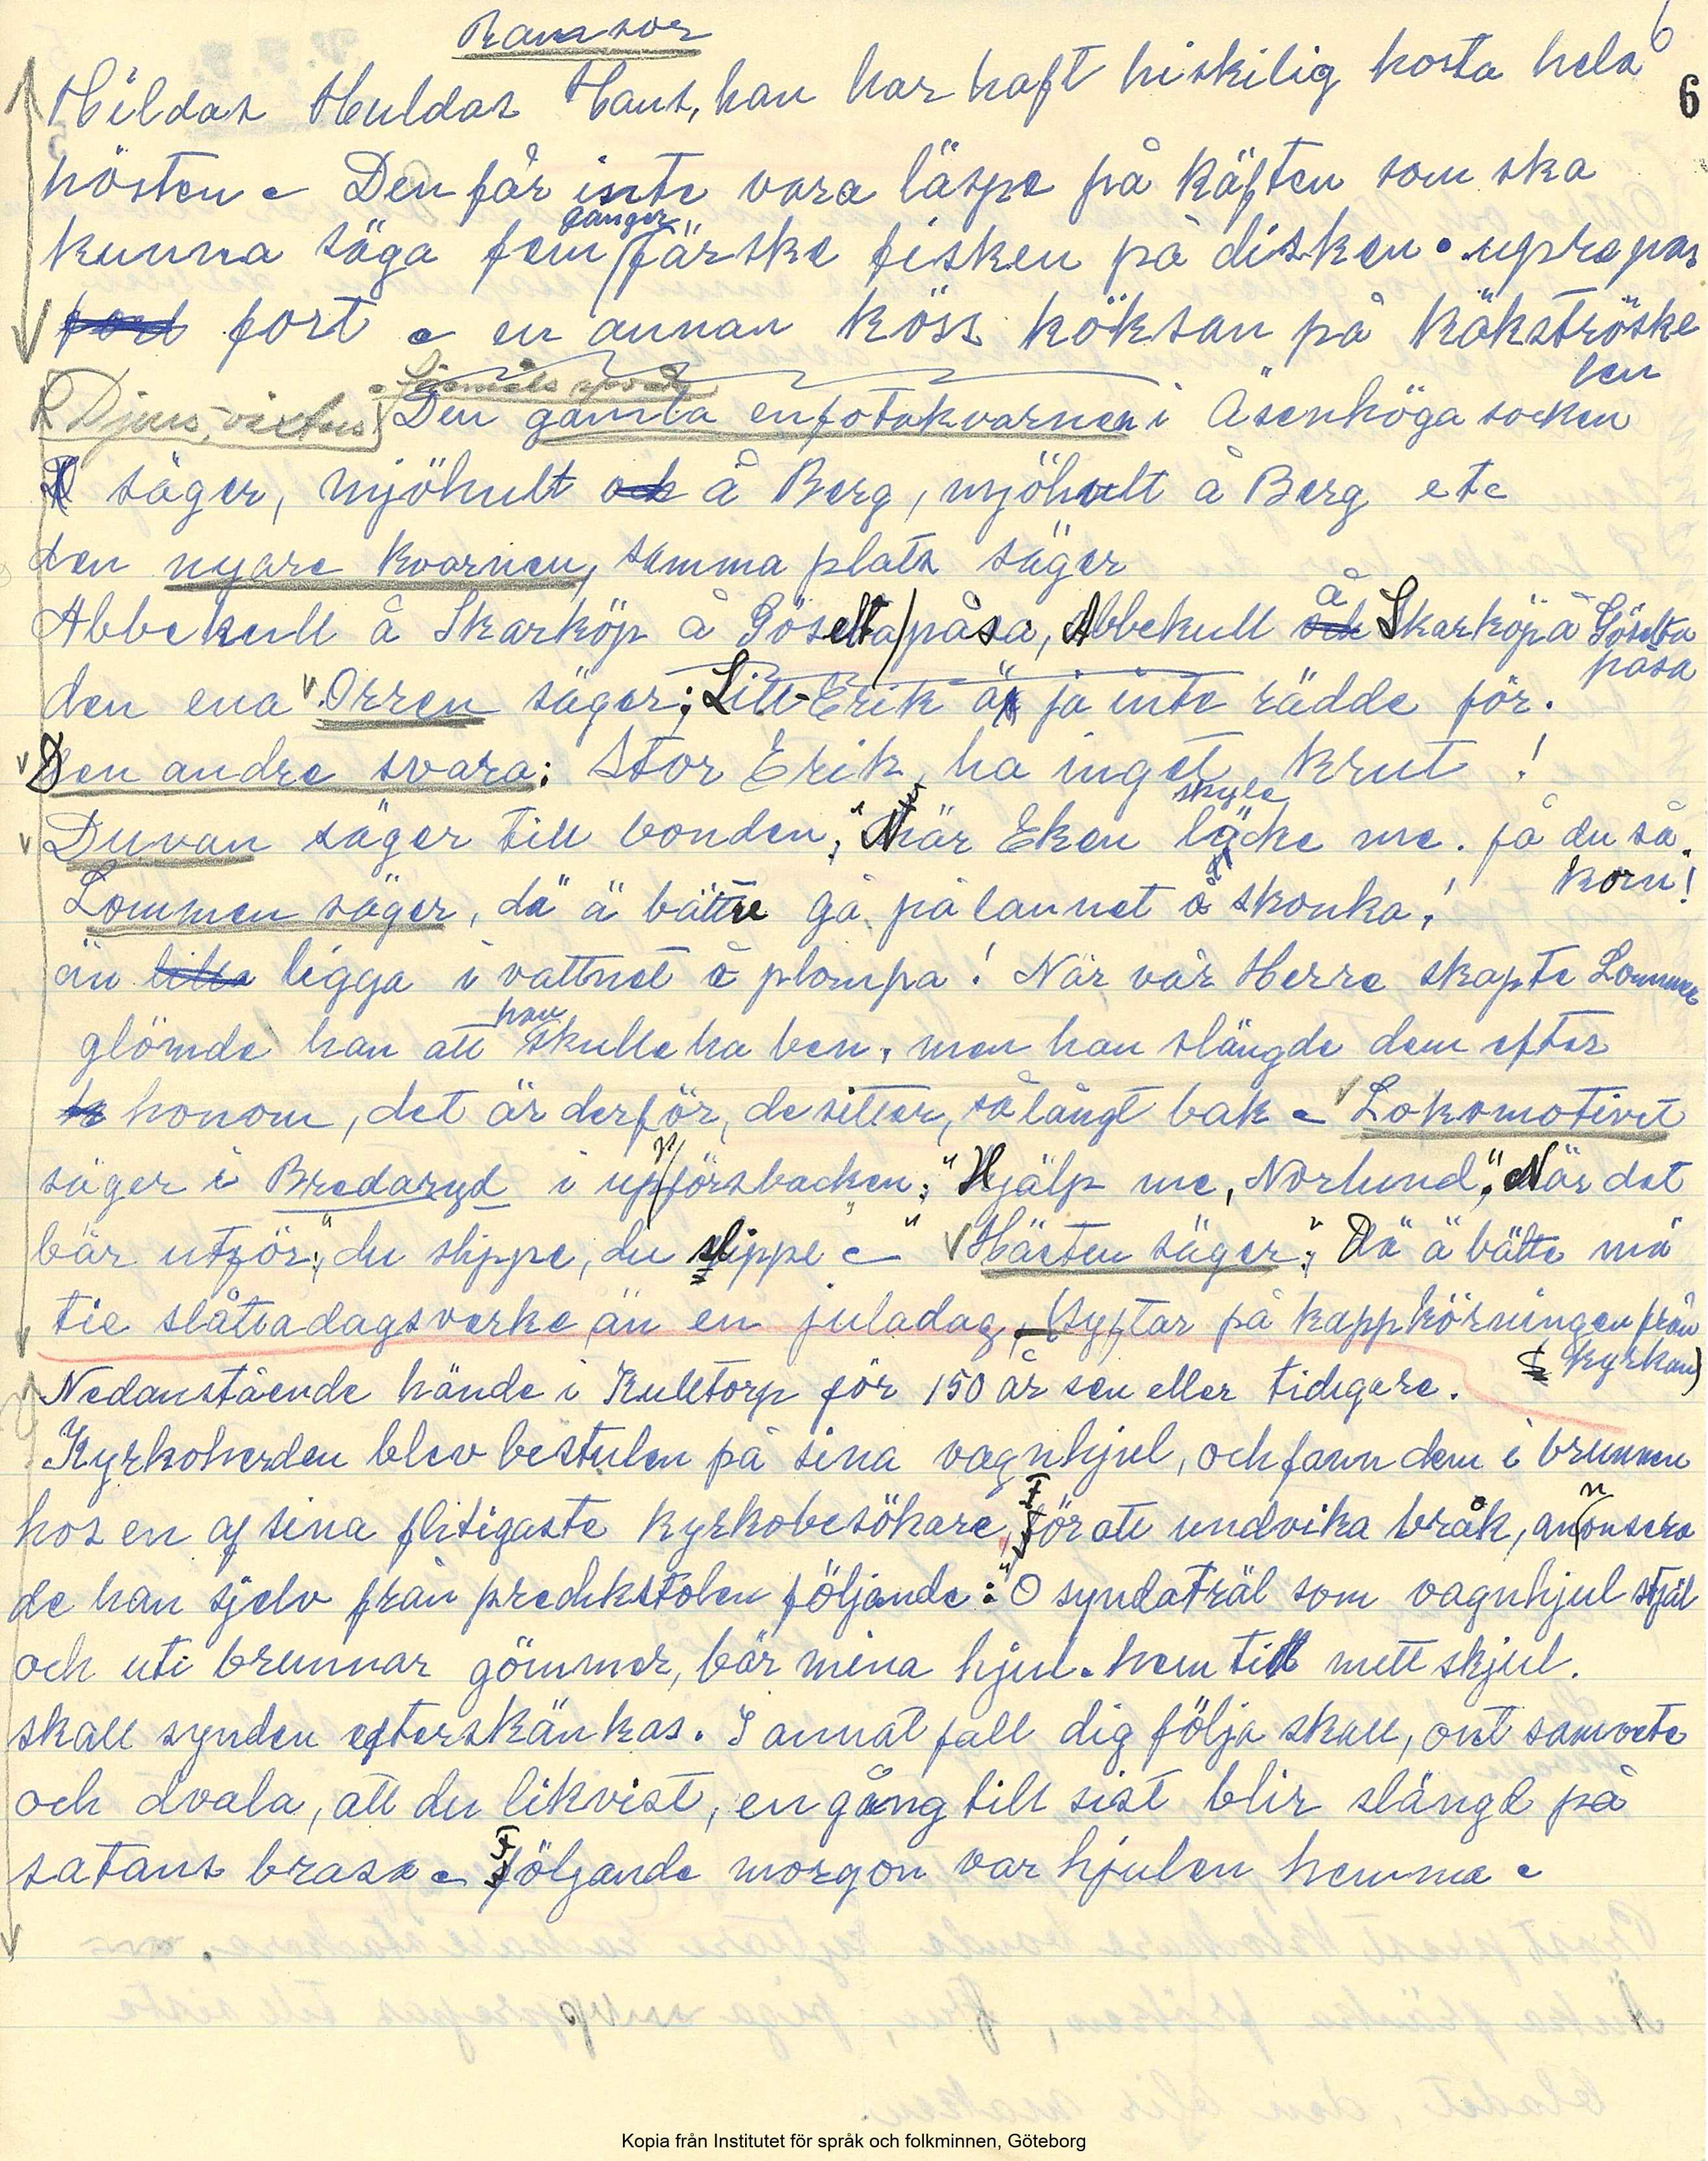 Ramsor
6
6
Hildas Huldas Hans, han har haft hiskilig hosta hela
hösten. Den får inte vara läspe på käften som ska
gånger
kunna säga fem färske fisken på disken. uprepas
fort en annan köss köksan på kökströske
len
Den gamla enfotakvarnen i Åsenhöga socken
säger, mjöhult å Berg, mjöhult å Berg etc
den nyare kvarnen, samma plats säger
Abbekull å Skarköp å Göselta påsa, Abbekull å Skarköp å Göselta
påsa
den ena Orren säger; Lill-Erik ä ja inte rädde för.
Den andre svara: Stor Erik, ha inget krut!
skule
Duvan säger till bonden; "När Eken löcke me. få du så.
korn!
Lommen säger, dä ä bättre gå på lannet å skonka!
än ligga i vattnet å plompa! När vår Herre skapte Lommen
han
glömde han att skulle ha ben, men han slängde dem efter
honom, det är derför, de sitter, så långt bak. Lokomotivet
säger i Bredaryd i uppförsbacken; "Hjälp me, Norlund", När det
bär utför; "du slippe, du slippe" Hästen säger; "Dä ä bätte mä
tie slåttadagsverke än en juladag, (Syftar på kappkörningen från
kyrkan)
Nedanstående hände i Kulltorp för 150 år sen eller tidigare.
Kyrkoherden blev bestulen på sina vagnhjul, och fann dem i brunnen
hos en af sina flitigaste kyrkobesökare, För att undvika bråk, annonsera
de han sjelv från predikstolen följande: "O syndaträl som vagnhjul stjäl
och uti brunnar gömmer, bär mina hjul. hem till mitt skjul.
skall synden efterskänkas. I annat fall dig följa skall, ont samvete
och dvala, att du likvist, en gång till sist blir slängd på
satans brasa. Följande morgon var hjulen hemma.
Kopia från Institutet för språk och folkminnen, Göteborg